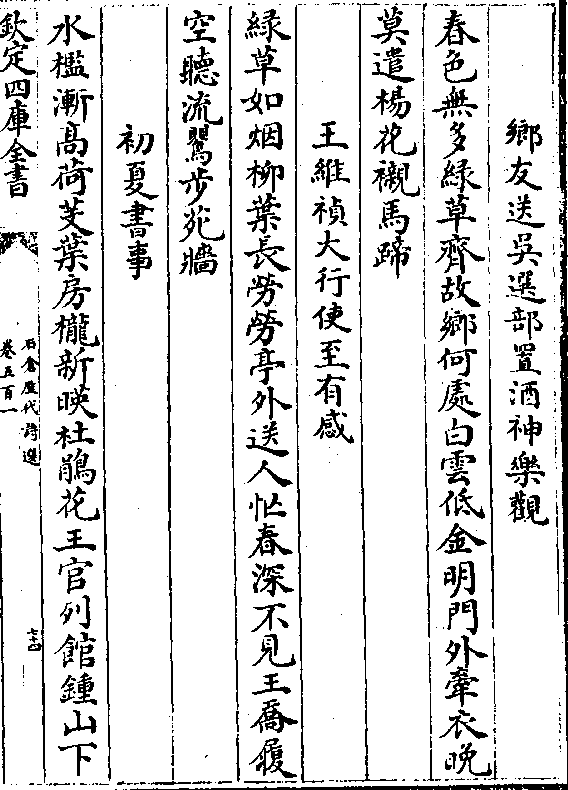 鄉友送吳選部置酒神樂觀
春色無多緑草齊故鄉何處白雲低金明門外牽衣晚
莫遣楊花襯馬蹄
王維禎大行使至有感
緑草如烟柳葉長勞勞亭外送人忙春深不見王喬履
空聽流鶯步苑牆
初夏書事
水檻漸高荷芰葉房櫳新暎杜鵑花王官列館鍾山下
欽定四庫全書
石倉歴代詩選
卷五百一